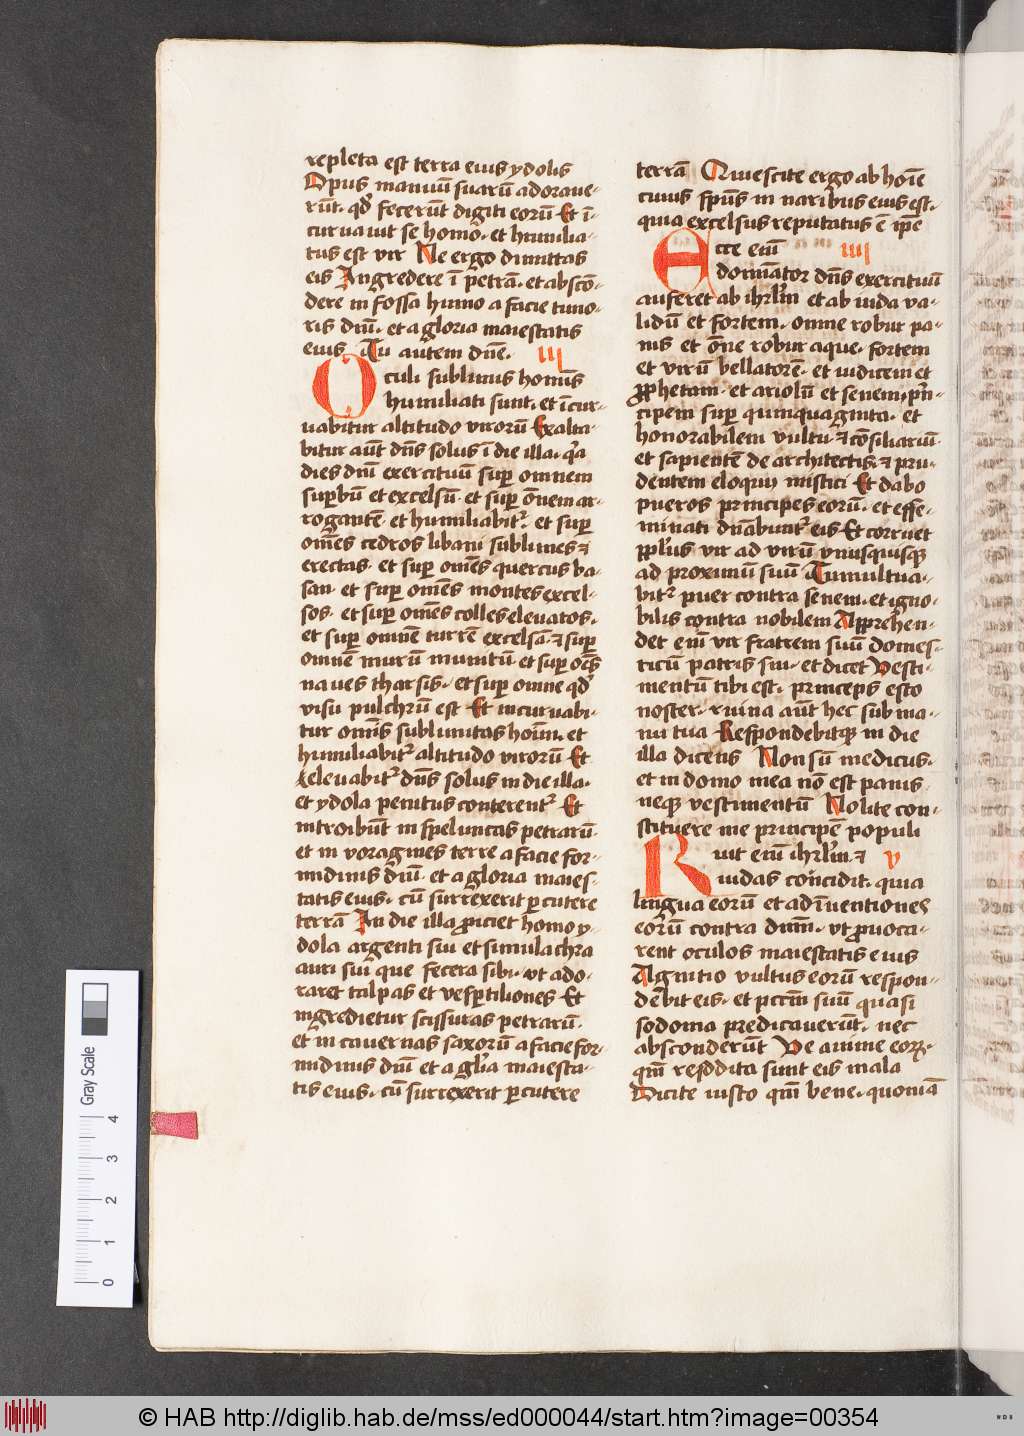 repleta est terra eius ydolis
Opus manuū suarū adoraue-
rūt· qd̄ fecerūt digiti eorū Et ī-
curuauit se homo· et humilia-
tus est vir Ne ergo dimittas
eis Ingredere ī petrā· et abscō-
dere in fossa humo a facie timo-
ris dn̄i· et a gloria maiestatis
eius Tu autem dn̄e· III
Oculi sublimis homīs
humiliati sunt· et īcur-
uabitur altitudo virorū Exalta-
bitur aūt dn̄s solus ī die illa· qꝛ
dies dn̄i exercituū sup̄ omnem
sup̄bū et excelsū· et sup̄ ōnem ar-
rogantē· et humiliabitᷣ· et sup̄
om̄es cedros libani sublimes ⁊
erectas· et sup̄ om̄es quercus ba-
san· et sup̄ om̄es montes excel-
sos· et sup̄ om̄es colles eleuatos·
et sup̄ omnē turrē excelsā· ⁊ sup̄
omnē murū munitū· et sup̄ oēs
naues tharsis· et sup̄ omne qd̄
visu pulchrū est Et incuruabi-
tur om̄is sublimitas hoīm· et
humiliabitᷣ altitudo virorū Et
eleuabitᷣ dn̄s solus in die illa·
et ydola penitus conterentᷣ Et
introibūt in speluncas petrarū·
et in voragines terre a facie for-
midinis dn̄i· et a gloria maies-
tatis eius· cū surrexerit ꝑcutere
terrā In die illa ꝓiciet homo y-
dola argenti sui et simulachra
auri sui que fecera sibi· vt ado-
raret talpas et vesꝑtiliones Et
ingredietur scissuras petrarū·
et in cauernas saxorū a facie for-
midinis dn̄i et a gl̄ia maiesta-
tis eius· cū surrexerit ꝑcutere
terrā Quiescite ergo ab hoīe
cuius sp̄us in naribus eius est·
quia excelsus reputatus ē ip̄e
Ecce em̄ IIII
dominator dn̄s exercituū
auferet ab ihrl̄m et ab iuda va-
lidū et fortem· omne robur pa-
nis et ōne robur aque· fortem
et virū bellatorē· et iudicem et
ꝓphetam· et ariolū et senem· pn̄-
cipem sup̄ quinquaginta· et
honorabilem vultu· ⁊ cōsiliariū·
et sapientē de architectis· ⁊ pru-
dentem eloquij mistici Et dabo
pueros principes eorū· et effe-
minati dn̄abuntᷣ eis Et corruet
pp̄lus vir ad virū vnusquisqꝫ
ad proximū suū Tumultua-
bitᷣ puer contra senem· et igno-
bilis contra nobilem Apprehen-
det em̄ vir fratrem suū domes-
ticū patris sui· et dicet Vesti-
mentū tibi est· princeps esto
noster· ruina aūt hec sub ma-
nu tua Respondebitqꝫ in die
illa dicens Non sū medicus·
et in domo mea nō est panis
neqꝫ vestimentū Nolite con-
stituere me principē populi
Ruit em̄ ihrl̄m ⁊ V
iudas concidit· quia
lingua eorū et adīuentiones
eorū contra dn̄m· vt ꝓuoca-
rent oculos maiestatis eius
Agnitio vultus eorū respon-
debit eis· et pctm̄ suū quasi
sodoma predicauerūt· nec
absconderūt Ve anime eoꝝ·
qm̄ reddita sunt eis mala
Dicite iusto qm̄ bene· quoniā
Gray Scale
0 1 2 3 4
© HAB http://diglib.hab.de/mss/ed000044/start.htm?image=00354